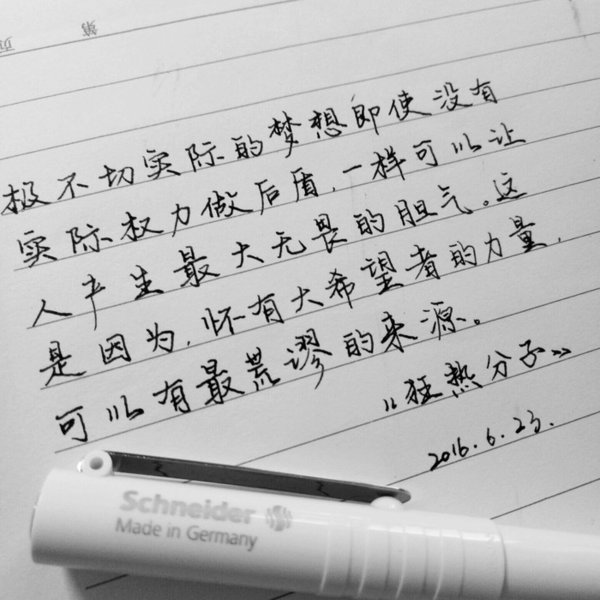 第 页
极不切实际的梦想即使没有
实际权力做后盾,一样可以让
人产生最大无畏的胆气。这
是因为,怀有大希望者的力量,
可以有最荒谬的来源。
《狂热分子》
2016.6.23.
Schneider
Made in Germany